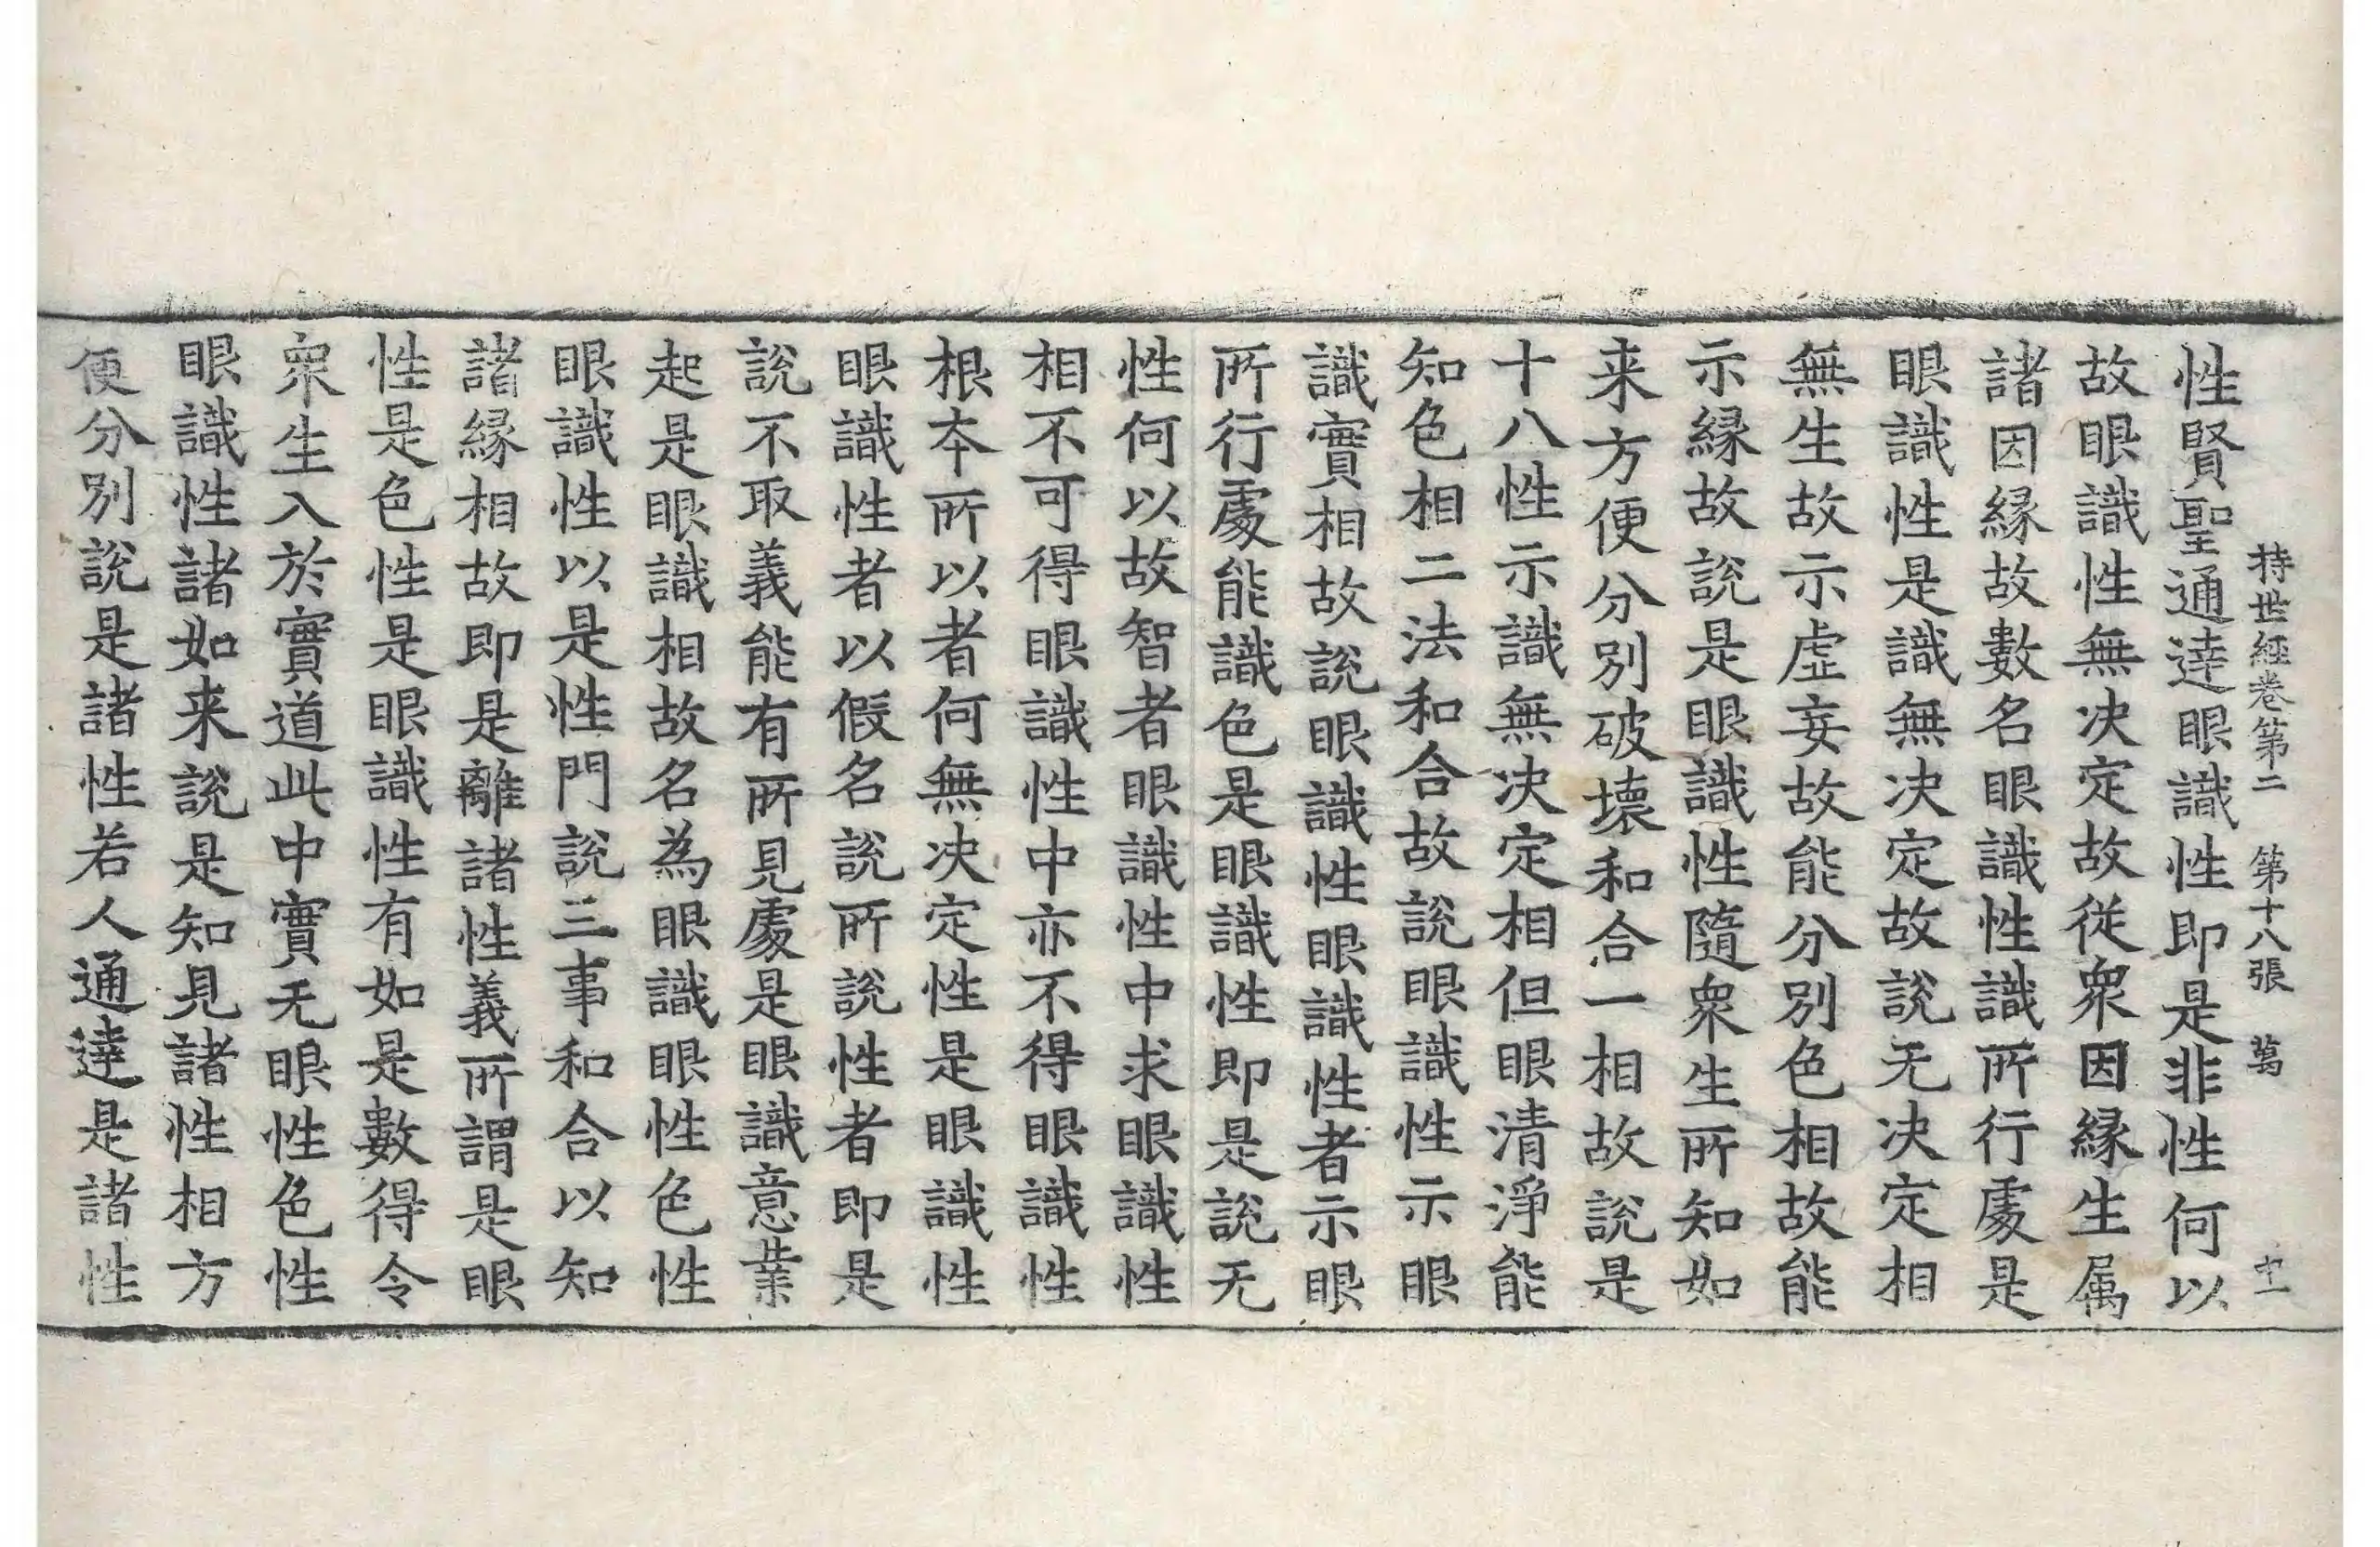 持世經卷第二　第十八張　萬
性賢聖通達眼識性即是非性何以
故眼識性無决定故從衆因緣生属
諸因緣故數名眼識性識所行處是
眼識性是識無决定故說无决定相
無生故示虛妄故能分別色相故能
示緣故說是眼識性隨衆生所知如
来方便分別破壞和合一相故說是
十八性示識無决定相但眼清淨能
知色相二法和合故說眼識性示眼
識實相故說眼識性眼識性者示眼
所行處能識色是眼識性即是說无
性何以故智者眼識性中求眼識性
相不可得眼識性中亦不得眼識性
根本所以者何無决定性是眼識性
眼識性者以假名說所說性者即是
說不取義能有所見處是眼識意業
起是眼識相故名為眼識眼性色性
眼識性以是性門說三事和合以知
諸緣相故即是離諸性義所謂是眼
性是色性是眼識性有如是數得令
衆生入於實道此中實无眼性色性
眼識性諸如来說是知見諸性相方
便分別說是諸性若人通達是諸性